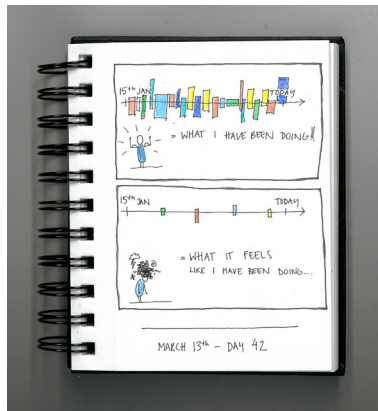 15th JAN TODAY
= WHAT I HAVE BEEN DOING!!
15th JAN TODAY
= WHAT IT FEELS
LIKE I HAVE BEEN DOING...
MARCH 13th - DAY 42